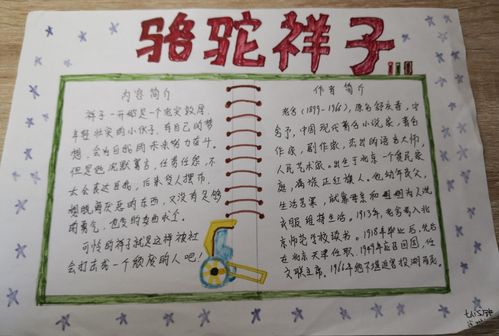 骆驼祥子
内容简介
祥子一开始是一个忠实敦厚、
年轻壮实的小伙子,有自己的梦
想,会为自己的未来努力奋斗。
但是他沉默寡言,任劳任怨,不
太会表达自己,后来贪人摆布,
想晓着反抗的东西,又没有足够
的勇气,
可怜的祥子就是这样被社
会打击成一个颓废的人吧!
作者简介
老舍(1899-1966),原名舒庆春,字
舍予,中国现代著名小说家,著名
作家,剧作家,杰出的语言大师,
人民艺术家。出生于北京一个贫民家
庭,满族正红旗人。他幼年丧父,
生活苦寒,就靠母亲和为人洗
衣服维持生活。1913年,老舍考入北
京师范学校读书。1918年毕业后,先后
在北京天津任职,1949年后回国,任
文联主席。1966年他不堪迫害投湖而死。